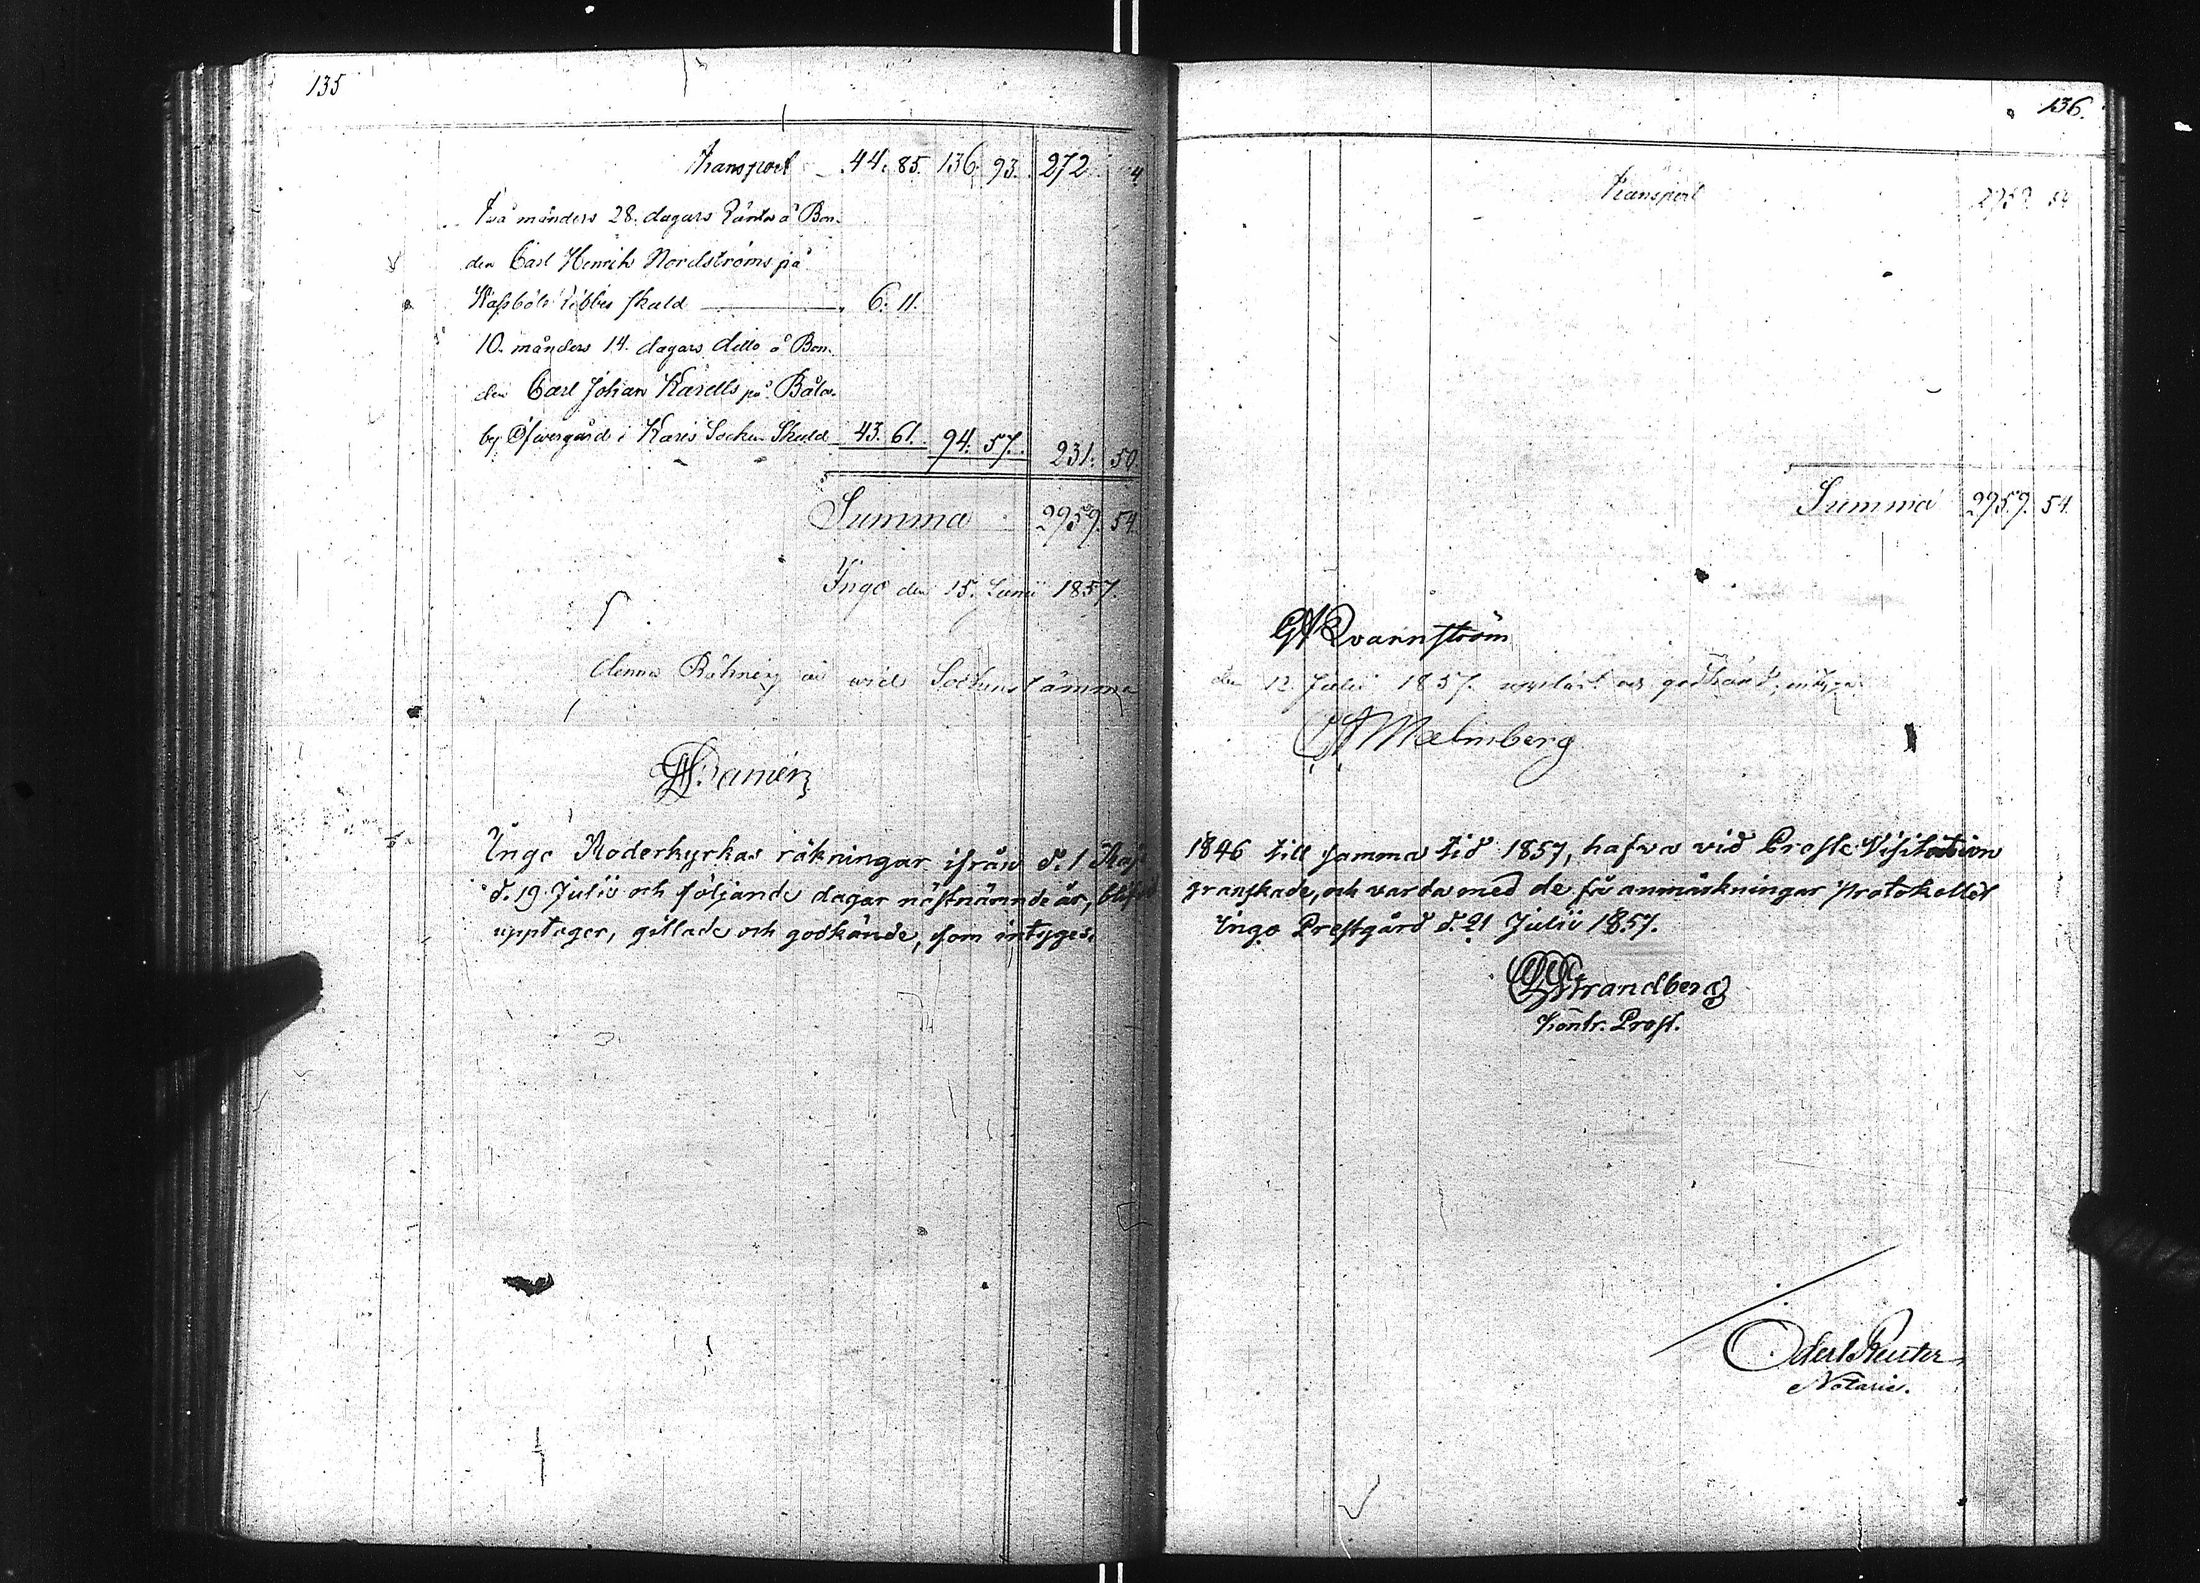 135
Transport 44. 85. 136. 93. 272 4.
Två månders 28. dagars Ränta å Bon-
den Carl Henrik Nordströms på
Wassböle Ribbes skuld 6. 11.
10. månders 14. dagars ditto å Bon-
den Carl Johan Karells på Båla-
by Öfvergård i Karis Socken Skuld 43. 61. 94. 57. 231. 50.
Summa 2959. 54.
Ingo den 15. Junii 1857.
denna Räkning är wid Sockenstämma
Ingo Moderkyrkas räkningar ifrån d. 1 Maj
d. 19 Julii och följande dagar nästnämnde år, blifvit
upptager, gillade och godkände, som intygas.
136.
Transport 2959 54
Summa 2959. 54.
GA Qvarnström
den 12 Julii 1857. uppläst och godkänd, intyga
Malmberg
1846 till samma tid 1857, hafva vid Proste Visitation
granskade, och varda med de få anmärkningar Protokollet
Ingo Prestgård d. 21 Julii 1857.
Strandberg
Kontr. Prost.
Reuter
Notarie.